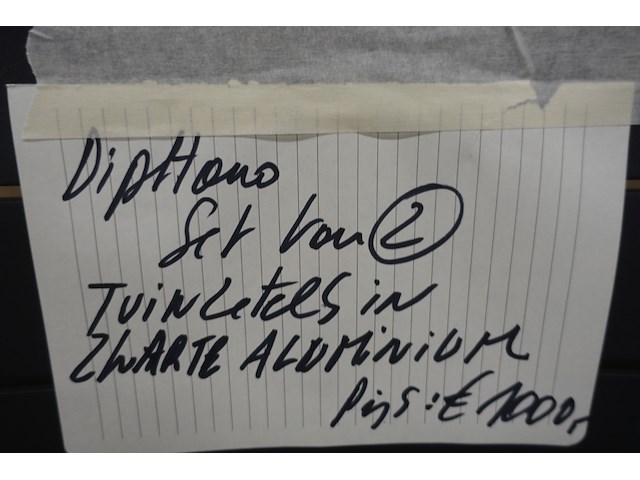 Diphano
Set van 2
TUINZetels in
ZWARTE ALUMINIUM
Prijs: € 1000,-